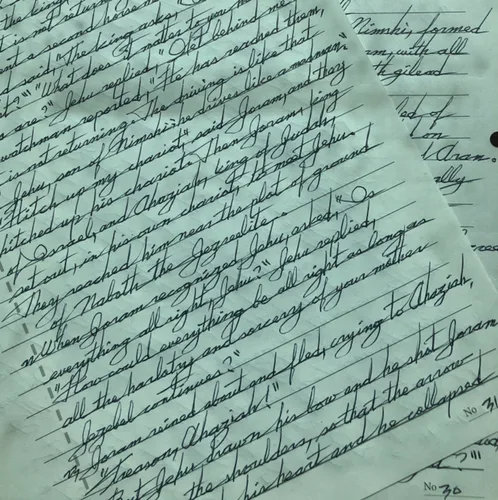 it is not return
nt a second horseman
d said, "The king asks,
t?" "What does it matter to you
s are?" Jehu replied, "Get behind me
watchman reported, "He has reached them,
is not returning. The driving is like that
Jehu, son of Nimshi; he drives like a madman"
"Hitch up my chariot", said Joram, and they
hitched up his chariot. Then Joram, king
of Israel, and Ahaziah, king of Judah,
set out, in his own chariot, to meet Jehu.
They reached him near the plot of ground
of Naboth the Jezreelite.
When Joram recognized Jehu, asked, "Is
everything all right, Jehu?" Jehu replied,
"How could everything be all right as long as
all the harlotry and sorcery of your mother
Jezebel continues?"
Joram reined about and fled, crying to Ahaziah,
"Treason, Ahaziah!"
But Jehu drawn his bow and he shot Joram
the shoulders, so that the arrow
his heart and he collapsed
No 31
Nimshi, formed
m, with all
th gilead
led of
Aram.
ally
No 30